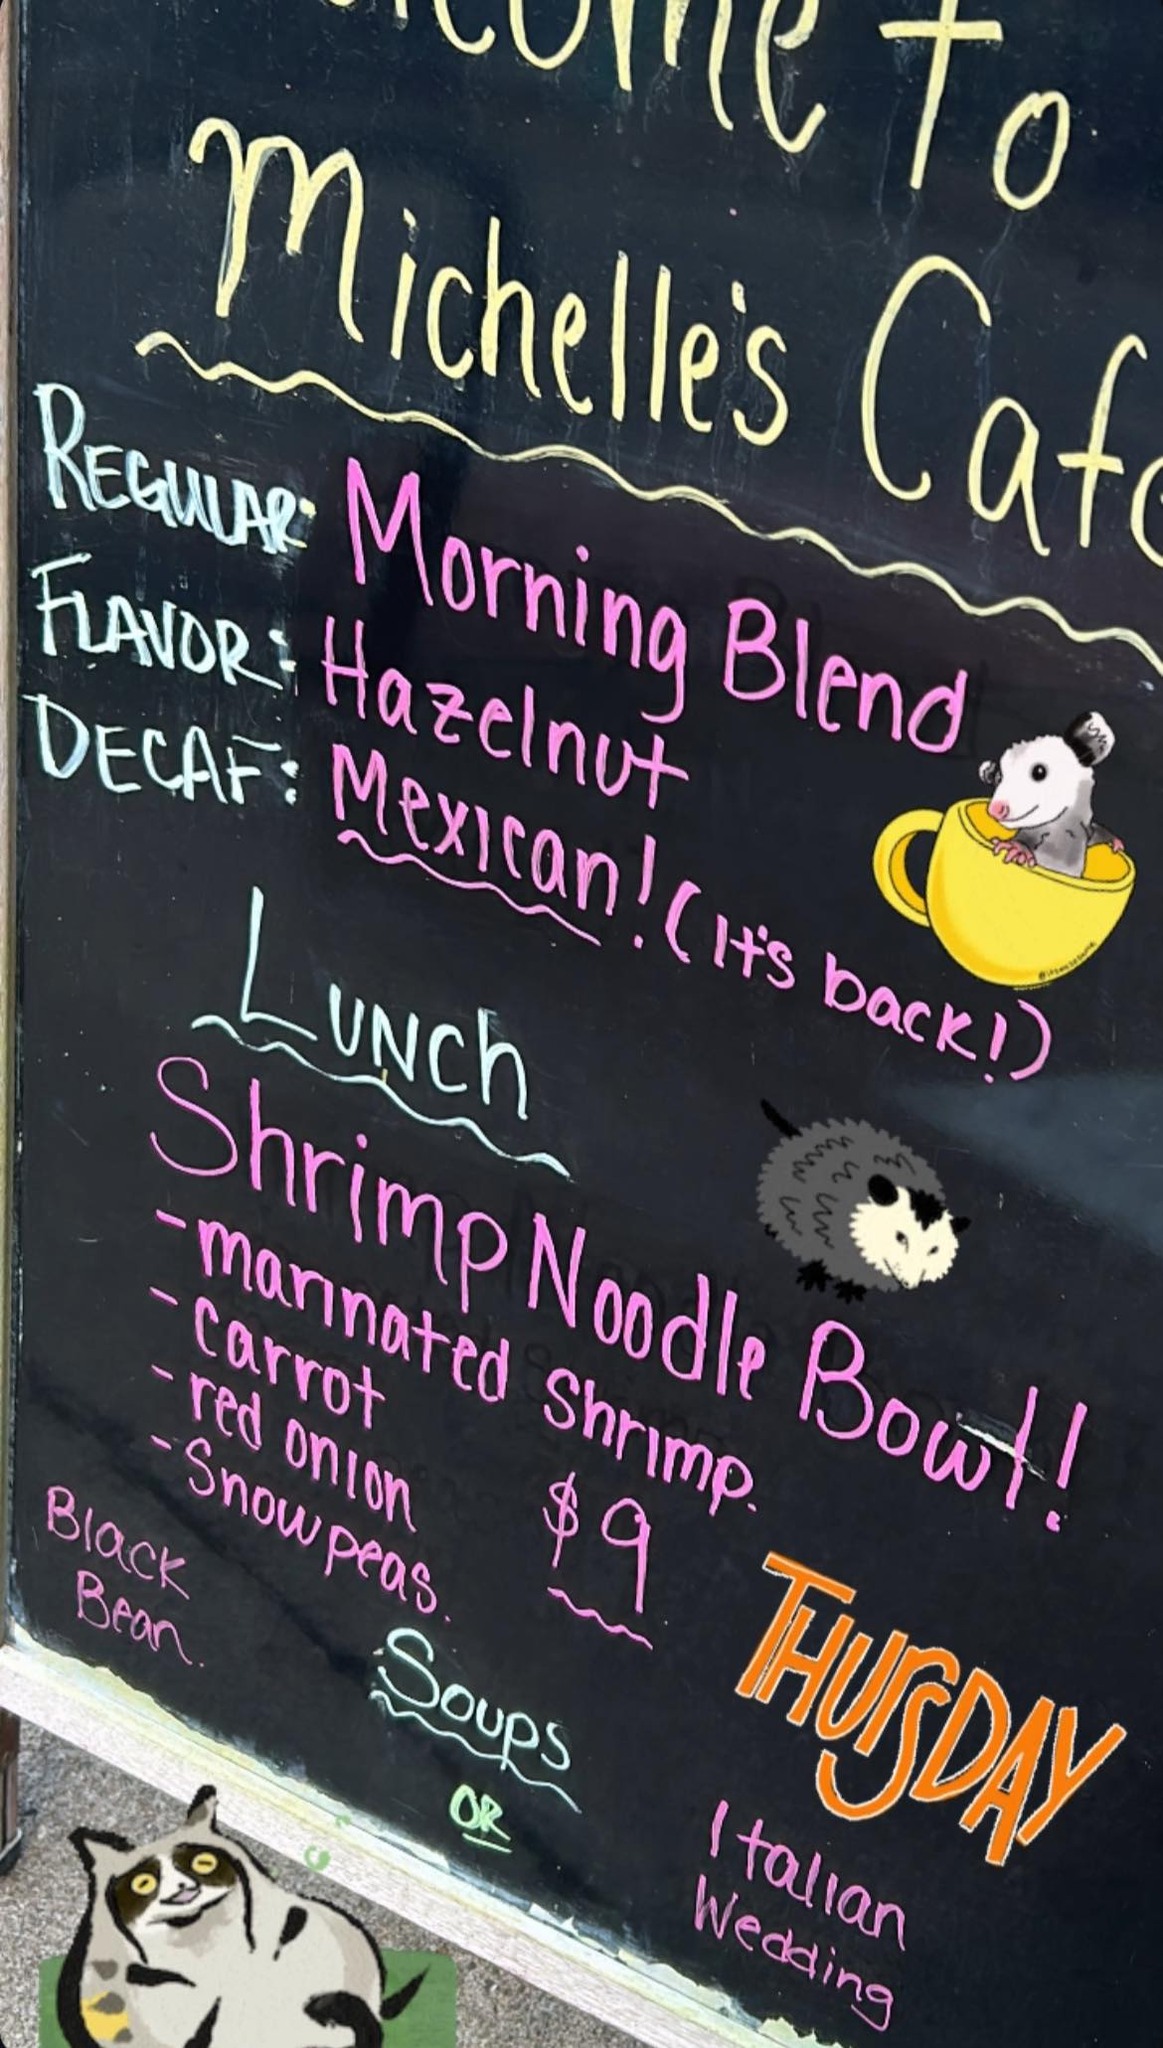 Welcome to
Michelle's Cafe
REGULAR: Morning Blend
FLAVOR: Hazelnut
DECAF: Mexican! (It's back!)
Lunch
Shrimp Noodle Bowl!
- marinated shrimp.
- carrot
- red onion
- Snowpeas.
$9
Soups
Black
Bean.
OR
Italian
Wedding
THURSDAY